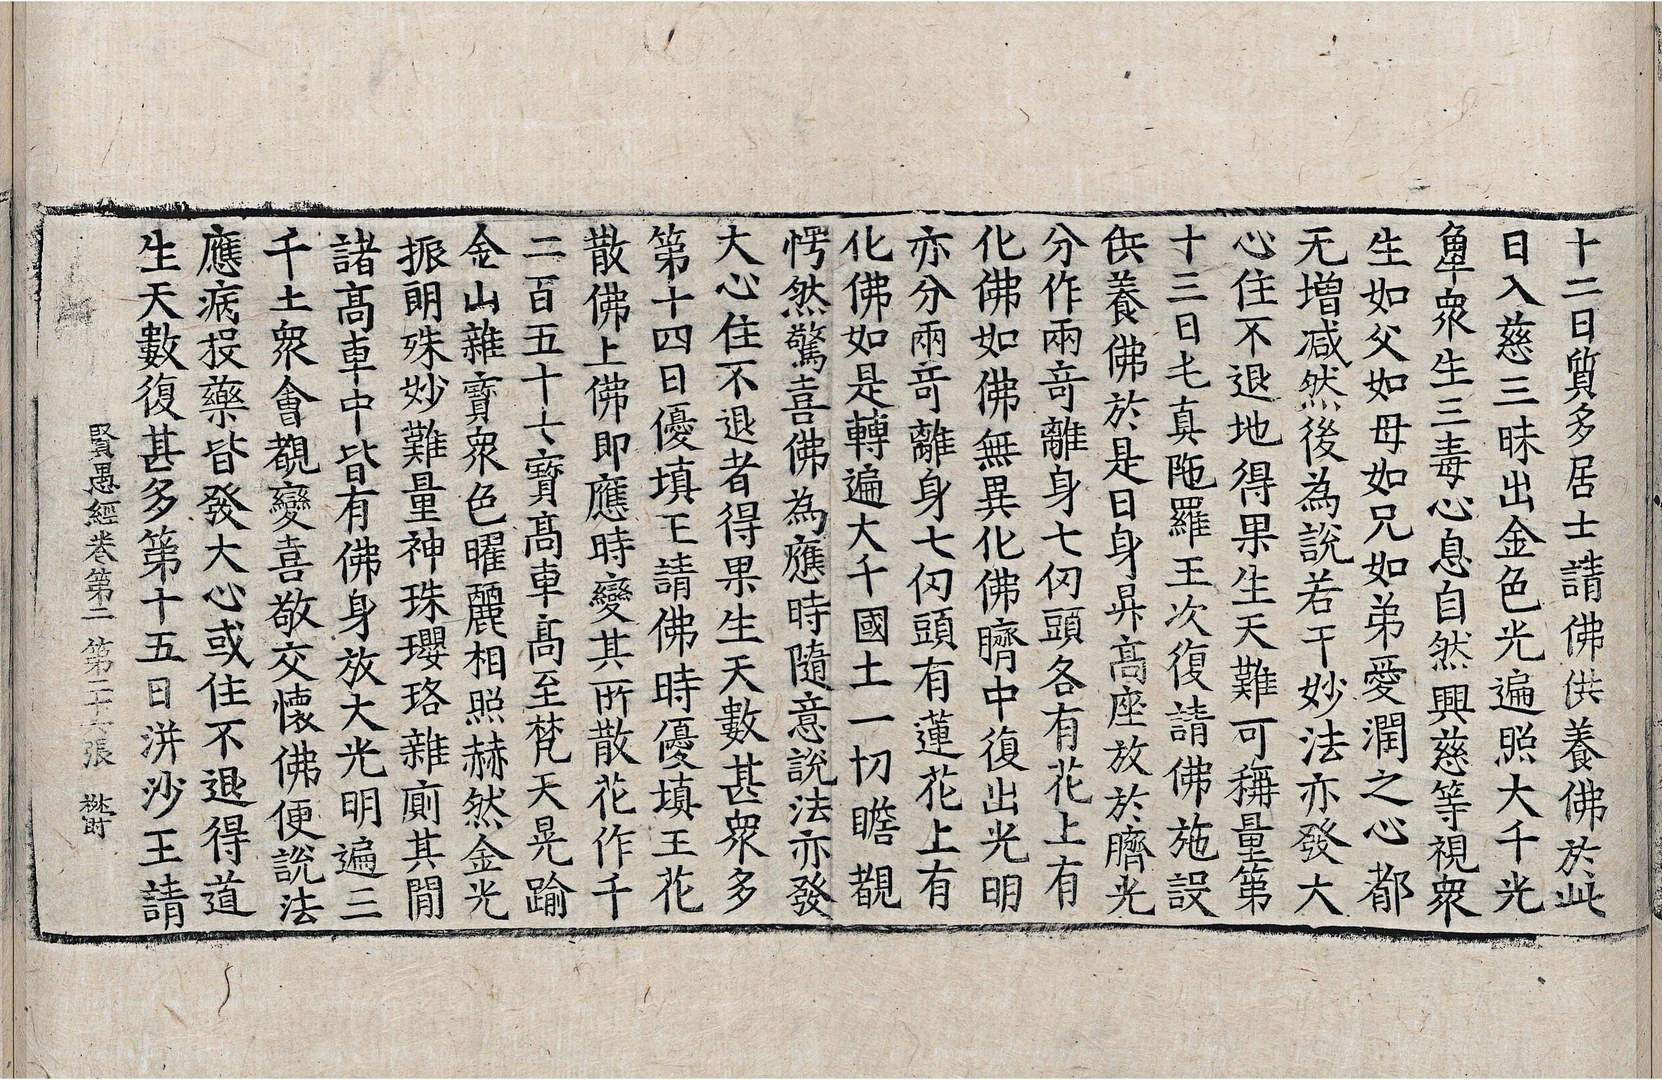 十二日質多居士請佛供養佛於此
日入慈三昧出金色光遍照大千光
觸衆生三毒心息自然興慈等視衆
生如父如母如兄如弟愛潤之心都
无增減然後為說若干妙法亦發大
心住不退地得果生天難可稱量第
十三日屯真陁羅王次復請佛施設
供養佛於是日身昇高座放於臍光
分作兩竒離身七仞頭各有花上有
化佛如佛無異化佛臍中復出光明
亦分兩竒離身七仞頭有蓮花上有
化佛如是轉遍大千國土一切瞻覩
愕然驚喜佛為應時隨意說法亦發
大心住不退者得果生天數甚衆多
第十四日優填王請佛時優填王花
散佛上佛即應時變其所散花作千
二百五十七寶髙車髙至梵天晃踰
金山雜寶衆色曜麗相照赫然金光
振朗殊妙難量神珠瓔珞雜廁其閒
諸髙車中皆有佛身放大光明遍三
千土衆會覩變喜敬交懷佛便說法
應病投藥皆發大心或住不退得道
生天數復甚多第十五日洴沙王請
賢愚經卷第二 第二十六張